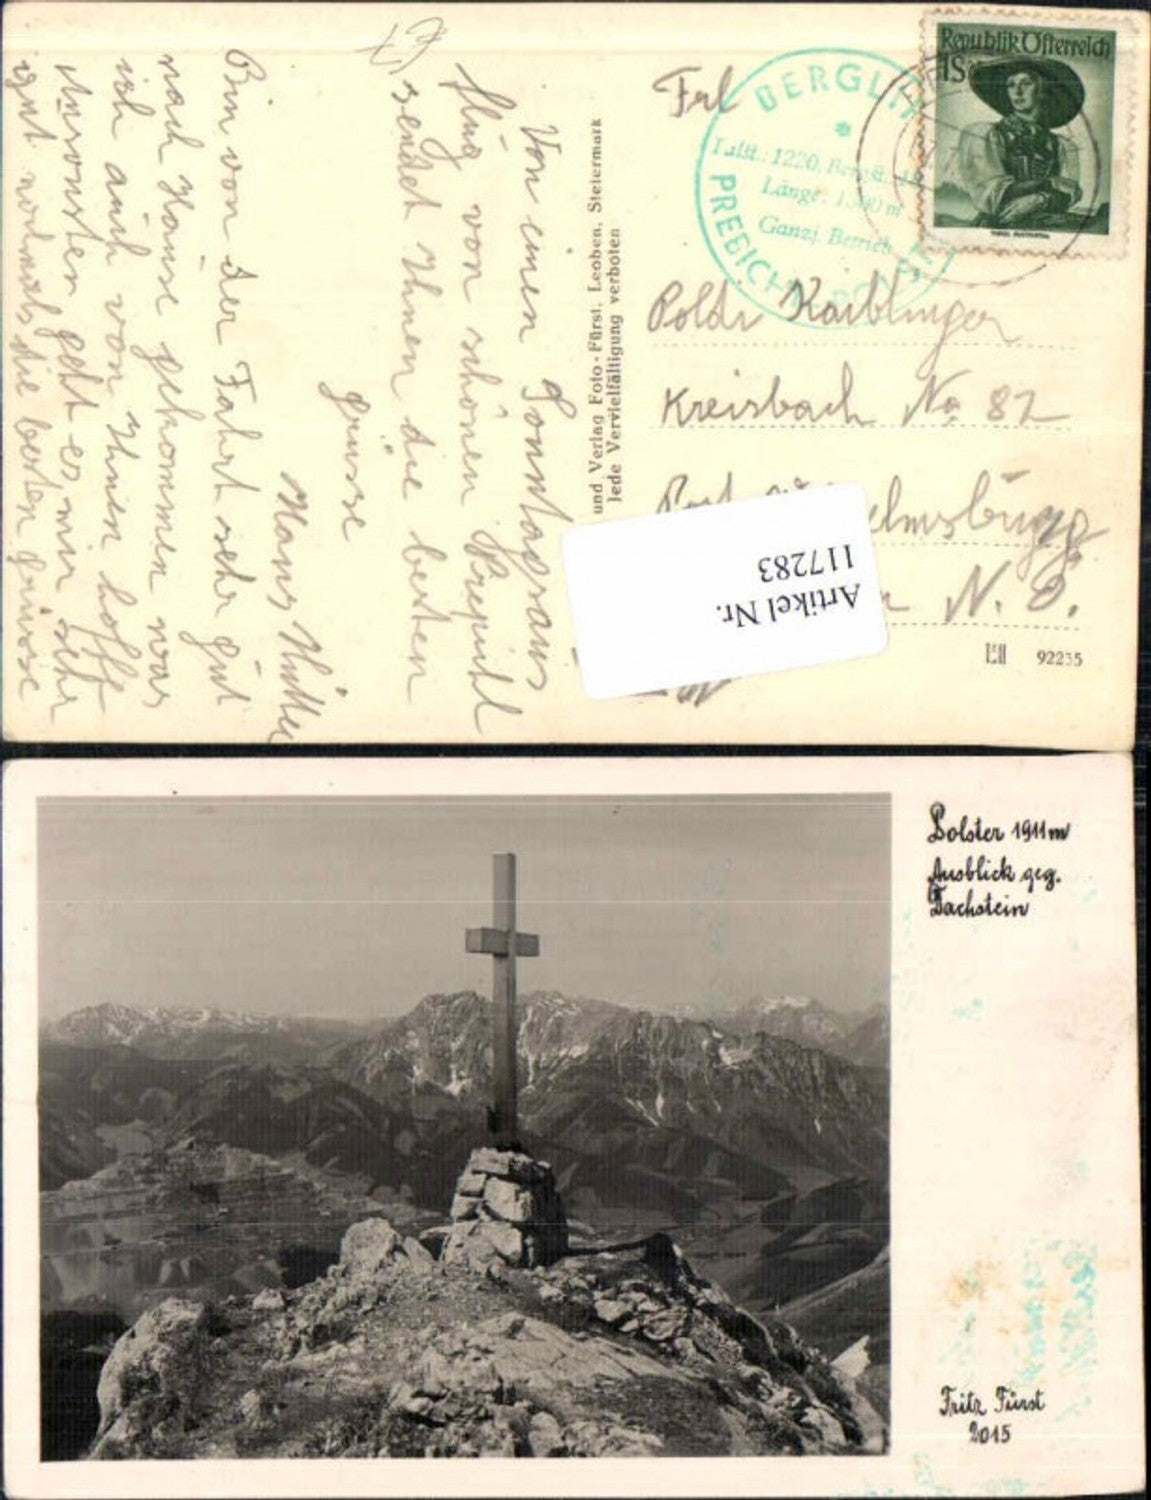 Von einen Sonntagsaus
flug von schönen Prepichl
sendet Ihnen die besten
Grüsse
Hans Hütter
Bin von der Fahrt sehr gut
nach Hause gekommen was
ich auch von Ihnen hoffe
Ansonsten geht es mir sehr
gut nochmals die besten grüsse
und Verlag Foto-Fürst, Leoben, Steiermark
Jede Vervielfältigung verboten
Republik Österreich
1S
BERGLI
Talst.: 1220, Bergst.
Länge: m
Ganzj. Betrieb
PREBICHL
Frl
Poldi Kaiblinger
Kreisbach No. 82
Post
N. Ö.
Artikel Nr.
117283
92235
Polster 1911m
Ausblick geg.
Dachstein
Fritz Fürst
2015